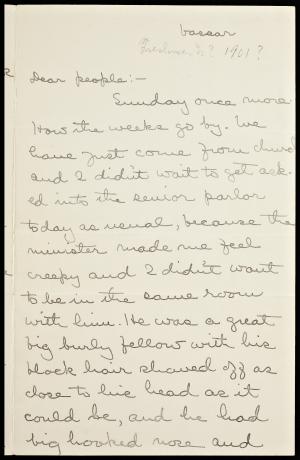 Vassar
Freshman yr? 1901?
Dear people:—
Sunday once more
How the weeks go by. We
have just come from church
and I didn't wait to get ask-
ed into the senior parlor
today as usual, because the
minister made me feel
creepy and I didn't want
to be in the same room
with him. He was a great
big burly fellow with his
black hair shaved off as
close to his head as it
could be, and he had
big hooked nose and